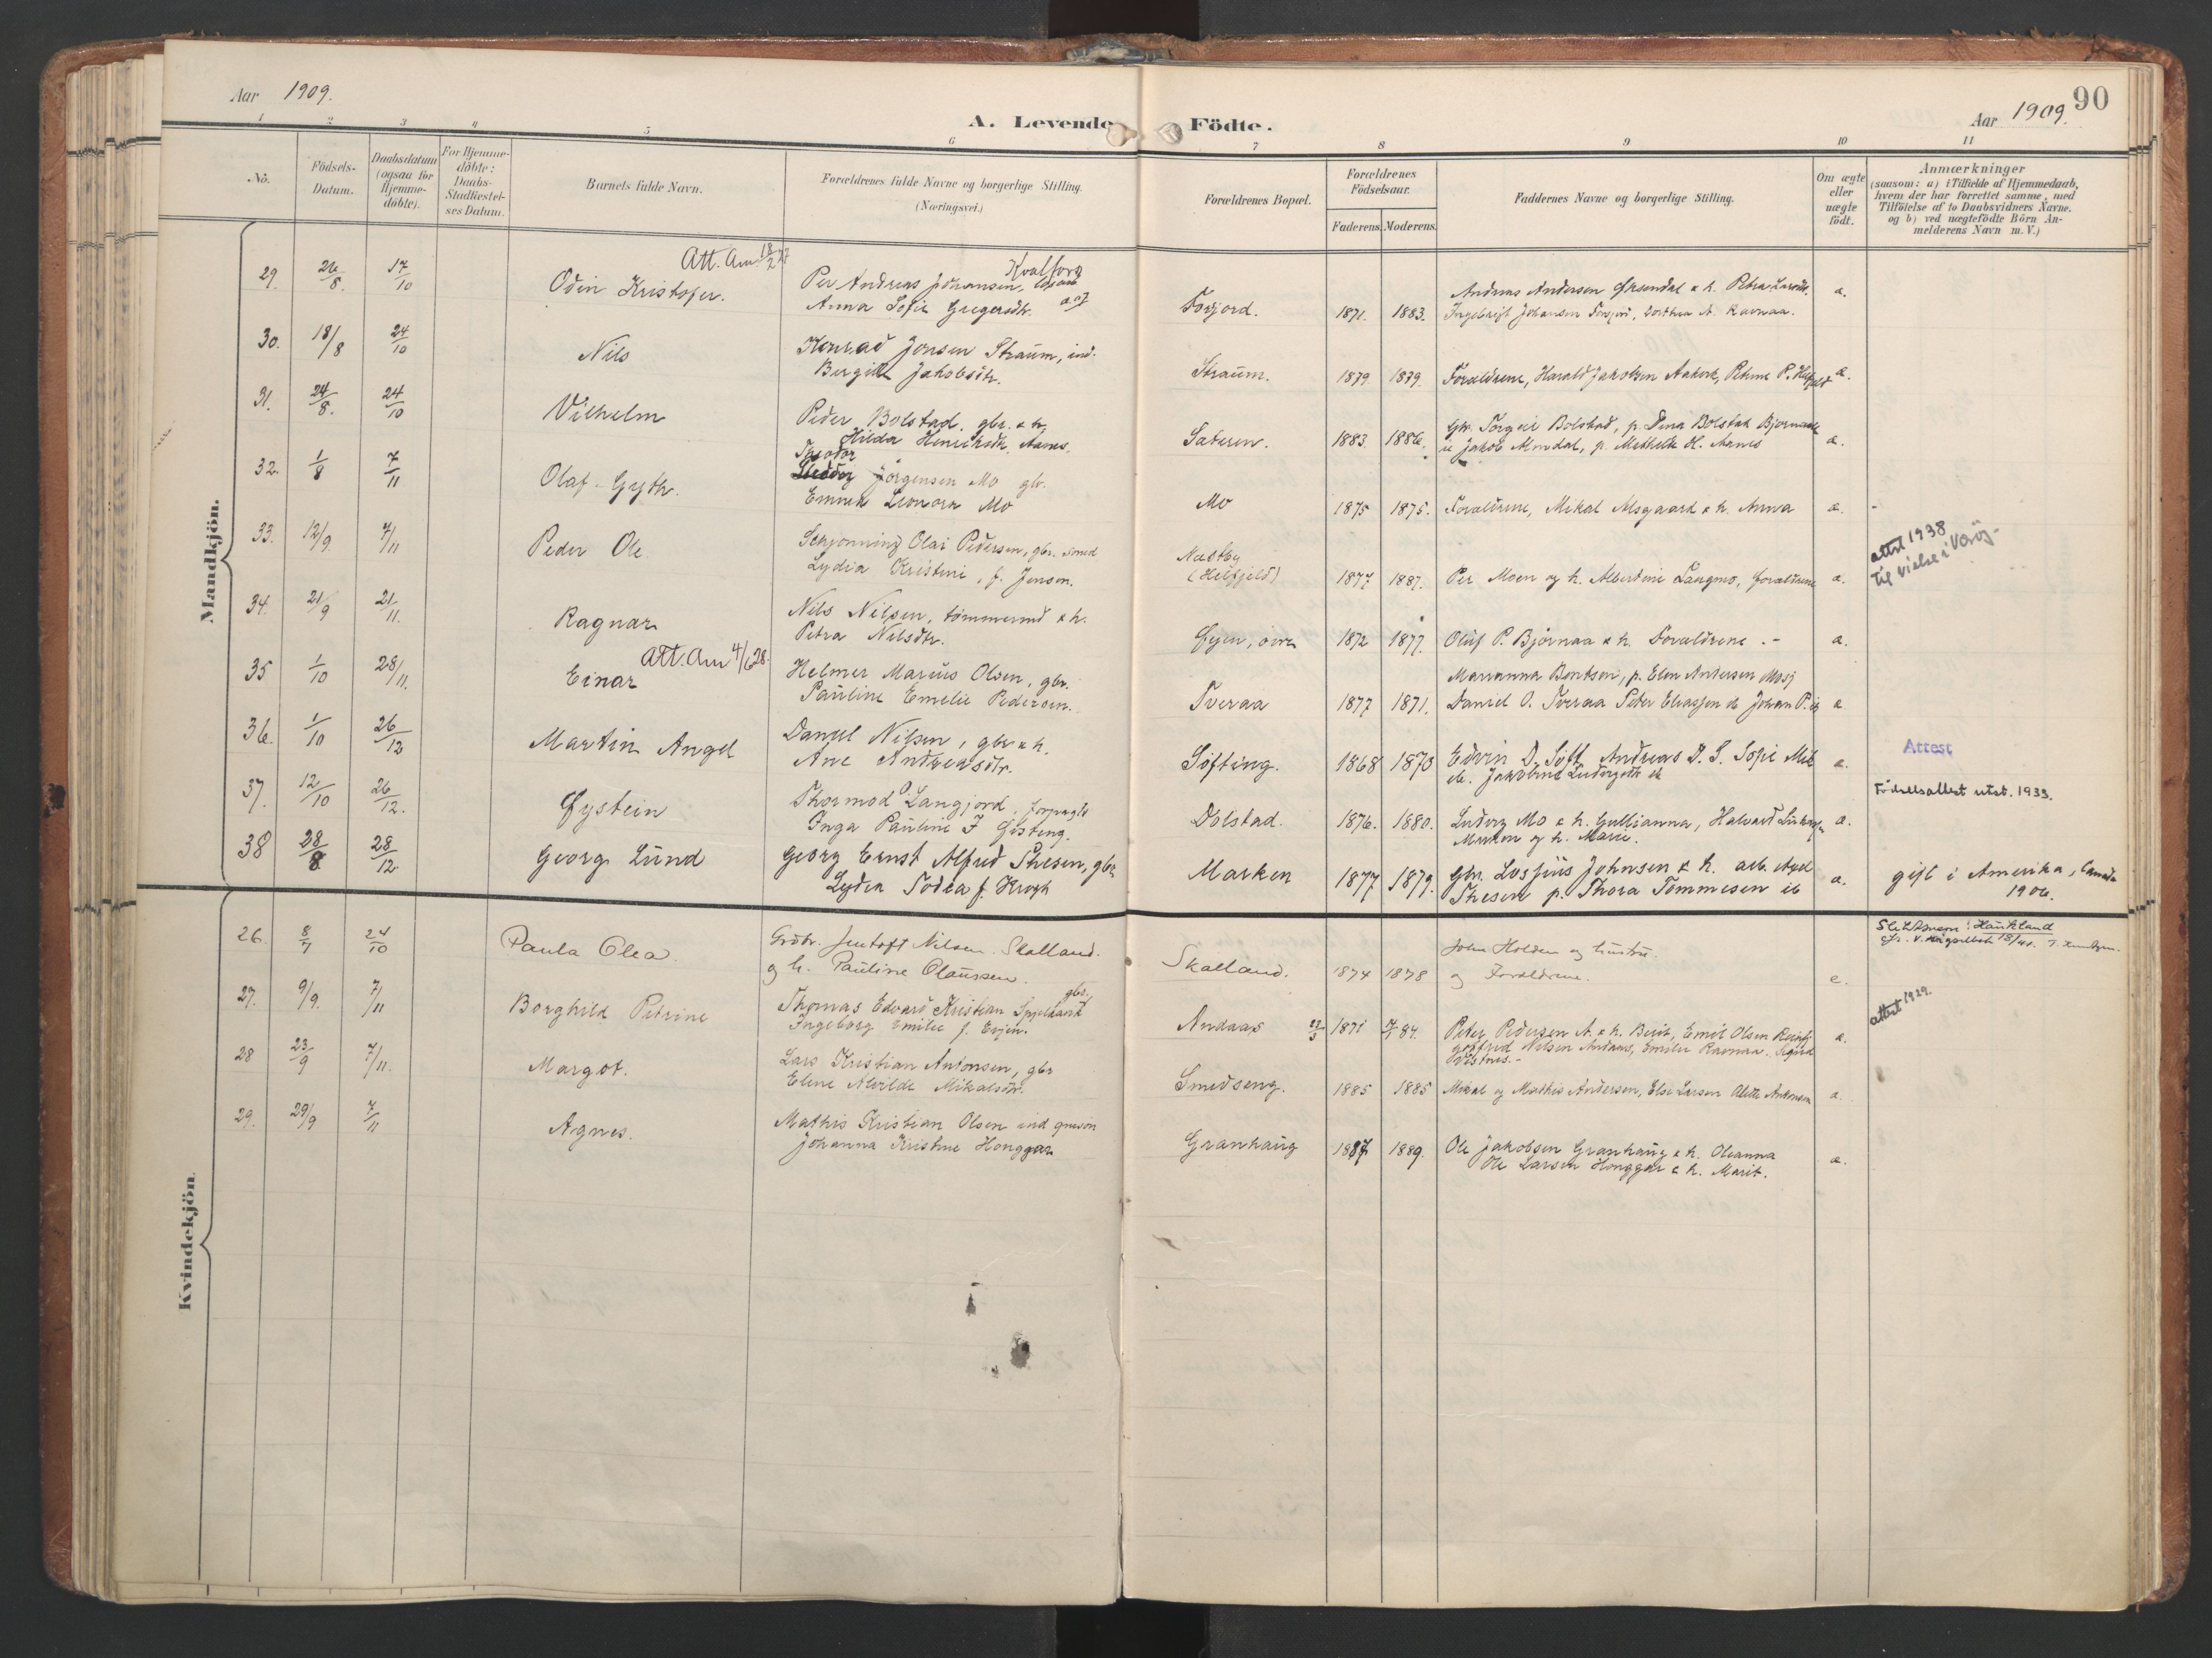 Aar 1909.
A. Levende Födte.
Aar 1909.
90
1 2 3 4 5 6 7 8 9 10 11
No.
Födsels-Datum.
Daabsdatum (ogsaa for Hjemme-döbte).
For Hjemme-döbte: Daabs-Stadfæstel-ses Datum.
Barnets fulde Navn.
Forældrenes fulde Navne og borgerlige Stilling. (Næringsvei.)
Forældrenes Bopæl.
Forældrenes Födselsaar.
Faderens. Moderens.
Faddernes Navne og borgerlige Stilling.
Om ægte eller uægte født.
Anmærkninger
(saasom: a) i Tilfælde af Hjemmedaab, hvem der har forrettet samme, med Tilföielse af to Daabsvidners Navne, og b) ved uægtefödte Börn An-melderens Navn m. V.)
Mandkjön.
29. 26/8. 17/10 Odin Kristofer. Att. Am. 18/2 27 Per Andreas Johansen, Kvalfors
Anna Sofie Gregersdtr. Forjord. 1871. 1883. Andreas Andersen
Ingebrigt Johansen Forjord, Dorthea A. Ravnaa.
30. 18/8 24/10 Nils Konrad Jonsen Straum, ind.
Bergitte Jakobsdtr. Straum. 1879. 1879. Forældrene, Harald Jakobsen Aakvik, Petrine P. æ.
31. 24/8. 24/10 Vilhelm Peder Bolstad, gbr. & h.
Hilda Henriksdtr. Aanes. Sæteren. 1883. 1886. Gbr. Torgeir Bolstad, p. Dina Bolstad
Jakob Mindal, p. Mathilde H. Aanes æ.
32. 1/8 7/11 Olaf Gyth. Theodor Jörgensen Mo gbr.
Emma Leonora Mo Mo 1875 1875. Forældrene, Mikal Alsgaard & h. Anna æ.
33. 12/9. 7/11 Peder Ole Schjonning Olai Pedersen, gbr. smed
Lydia Kristine, f. Jensen. Næstby (Helfjeld) 1877 1887. Per Moen og h. Albertine Langmo, forældrene æ.
attest 1938 til vielse i
34. 21/9 21/11. Ragnar Nils Nilsen, tömmermd & h.
Petra Nilsdtr. Øyen, övre 1872 1877. Oluf P. Björnaa & h. Forældrene. -
35 1/10 28/11. Einar Att. Am 4/6 28. Helmer Marius Olsen, gbr.
Pauline Emelie Pedersen. Tveraa 1877 1871. Marianna Bentsen, p. Elen Andersen Mosj
Daniel O. Tveraa Peter Eliassen Johan P.
36. 1/10 26/12 Martin Angel Daniel Nilsen, gbr & h.
Ane Andreasdtr. Söfting. 1868 1870 Edvin D. Söft. Andreas D. S. Sofie
Attest
37. 12/10 26/12. Øystein Thormod O Langjord, forpagtr
Inga Pauline J Gisting. Dolstad. 1876. 1880. Ludvig Mo & h. Gullianna, Halvard
og h. Marie. æ.
Födselsattest utst. 1933.
38 28/8 28/12 Georg Lund Georg Ernst Alfred Thesen, gbr
Lyder Todea f. Krogh Marken 1877 1879. Gbr. Losjius Johnsen & h. arb. Axel
Thesen p. Thora Tommesen ib æ.
gift i Amerika, Canada
1906.
Kvindekjön.
26. 8/7 24/10 Paula Olea. Grdbr. Jentoft Nilsen Skalland.
og h. Pauline Olaussen. Skalland. 1874 1878 John Holden og hustru
og Forældrene. e.
27. 9/9. 7/11 Borghild Petrine Thomas Edvard Kristian Spjelkavik gbr.
Ingeborg Emilie f. Andaas 1871 84. Peter Pedersen A. & h. Berit, Emil Olsen
Godtfred Nilsen Andaas, Emilie Ravnaa. Sigurd
attest 1929.
28 23/9 7/11. Margot. Lars Kristian Antonsen, gbr
Eline Alvilde Mikalsdtr. Smedseng. 1885 1885 Mikal og Mathis Andersen, Else Larsen Alette Antonsen æ.
29. 29/9 7/11 Agnes. Mathis Kristian Olsen ind
Johanna Kristine Honggar Granhaug 1887 1889. Ole Jakobsen Granhaug & h. Oleanna
Ole Larsen Honggar & h. Marit. æ.